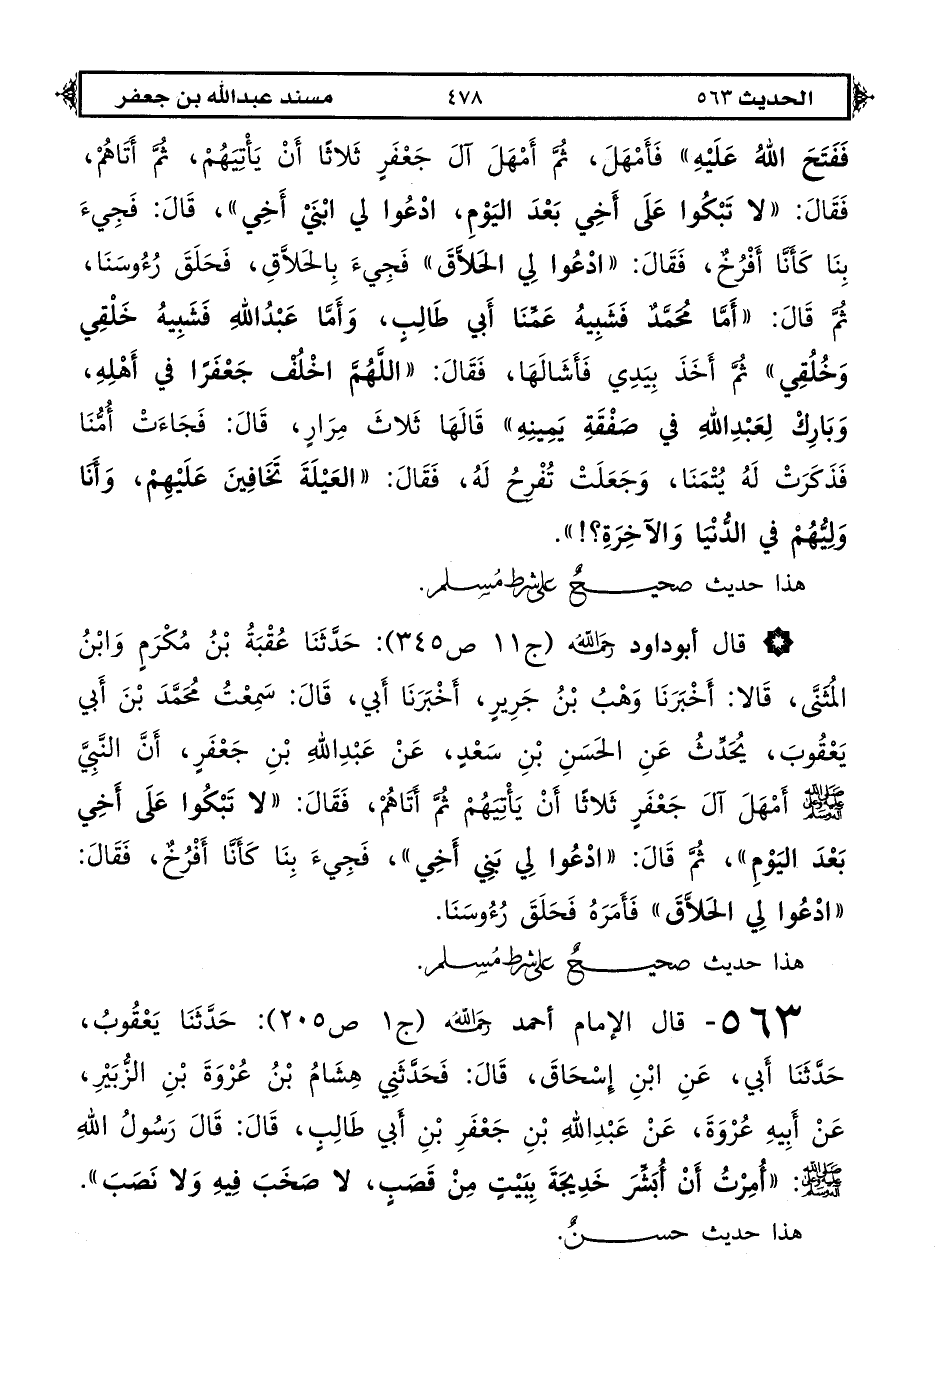 الحديث ٥٦٣ ٤٧٨ مسند عبدالله بن جعفر
فَفَتَحَ اللهُ عَلَيْهِ» فَأَمْهَلَ، ثُمَّ أَمْهَلَ آلَ جَعْفَرٍ ثَلاثًا أَنْ يَأْتِيَهُمْ، ثُمَّ أَتَاهُمْ،
فَقَالَ: «لا تَبْكُوا عَلَى أَخِي بَعْدَ اليَوْمِ، ادْعُوا لي ابْنَيْ أَخِي»، قَالَ: فَجِيءَ
بِنَا كَأَنَّا أَفْرُخٌ، فَقَالَ: «ادْعُوا لِي الحَلاَّقَ» فَجِيءَ بِالحَلاَّقِ، فَحَلَقَ رُءُوسَنَا،
ثُمَّ قَالَ: «أَمَّا مُحَمَّدٌ فَشَبِيهُ عَمِّنَا أَبي طَالِبٍ، وَأَمَّا عَبْدُاللهِ فَشَبِيهُ خَلْقِي
وَخُلُقِي» ثُمَّ أَخَذَ بِيَدِي فَأَشَالَهَا، فَقَالَ: «اللَّهُمَّ اخْلُفْ جَعْفَرًا في أَهْلِهِ،
وَبَارِكْ لِعَبْدِاللهِ في صَفْقَةِ يَمِينِهِ» قَالَهَا ثَلاثَ مِرَارٍ، قَالَ: فَجَاءَتْ أُمُّنَا
فَذَكَرَتْ لَهُ يُتْمَنَا، وَجَعَلَتْ تُفْرِحُ لَهُ، فَقَالَ: «العَيْلَةَ تَخَافِينَ عَلَيْهِمْ، وَأَنَا
وَلِيُّهُمْ في الدُّنْيَا وَالآخِرَةِ؟!».
هذا حديث صحيحٌ على شرط مُسلم.
۞ قال أبوداود رحمه الله (ج١١ ص٣٤٥): حَدَّثَنَا عُقْبَةُ بْنُ مُكْرَمٍ وَابْنُ
المُثَنَّى، قَالا: أَخْبَرَنَا وَهْبُ بْنُ جَرِيرٍ، أَخْبَرَنَا أَبي، قَالَ: سَمِعْتُ مُحَمَّدَ بْنَ أَبي
يَعْقُوبَ، يُحَدِّثُ عَنِ الحَسَنِ بْنِ سَعْدٍ، عَنْ عَبْدِاللهِ بْنِ جَعْفَرٍ، أَنَّ النَّبِيَّ
ﷺ أَمْهَلَ آلَ جَعْفَرٍ ثَلاثًا أَنْ يَأْتِيَهُمْ ثُمَّ أَتَاهُمْ، فَقَالَ: «لا تَبْكُوا عَلَى أَخِي
بَعْدَ اليَوْمِ»، ثُمَّ قَالَ: «ادْعُوا لِي بَنِي أَخِي»، فَجِيءَ بِنَا كَأَنَّا أَفْرُخٌ، فَقَالَ:
«ادْعُوا لِي الحَلاَّقَ» فَأَمَرَهُ فَحَلَقَ رُءُوسَنَا.
هذا حديث صحيحٌ على شرط مُسلم.
٥٦٣- قال الإمام أحمد رحمه الله (ج١ ص٢٠٥): حَدَّثَنَا يَعْقُوبُ،
حَدَّثَنَا أَبي، عَنِ ابْنِ إِسْحَاقَ، قَالَ: فَحَدَّثَنِي هِشَامُ بْنُ عُرْوَةَ بْنِ الزُّبَيْرِ،
عَنْ أَبِيهِ عُرْوَةَ، عَنْ عَبْدِاللهِ بْنِ جَعْفَرِ بْنِ أَبي طَالِبٍ، قَالَ: قَالَ رَسُولُ اللهِ
ﷺ: «أُمِرْتُ أَنْ أُبَشِّرَ خَدِيجَةَ بِبَيْتٍ مِنْ قَصَبٍ، لا صَخَبَ فِيهِ وَلا نَصَبَ».
هذا حديث حسنٌ.